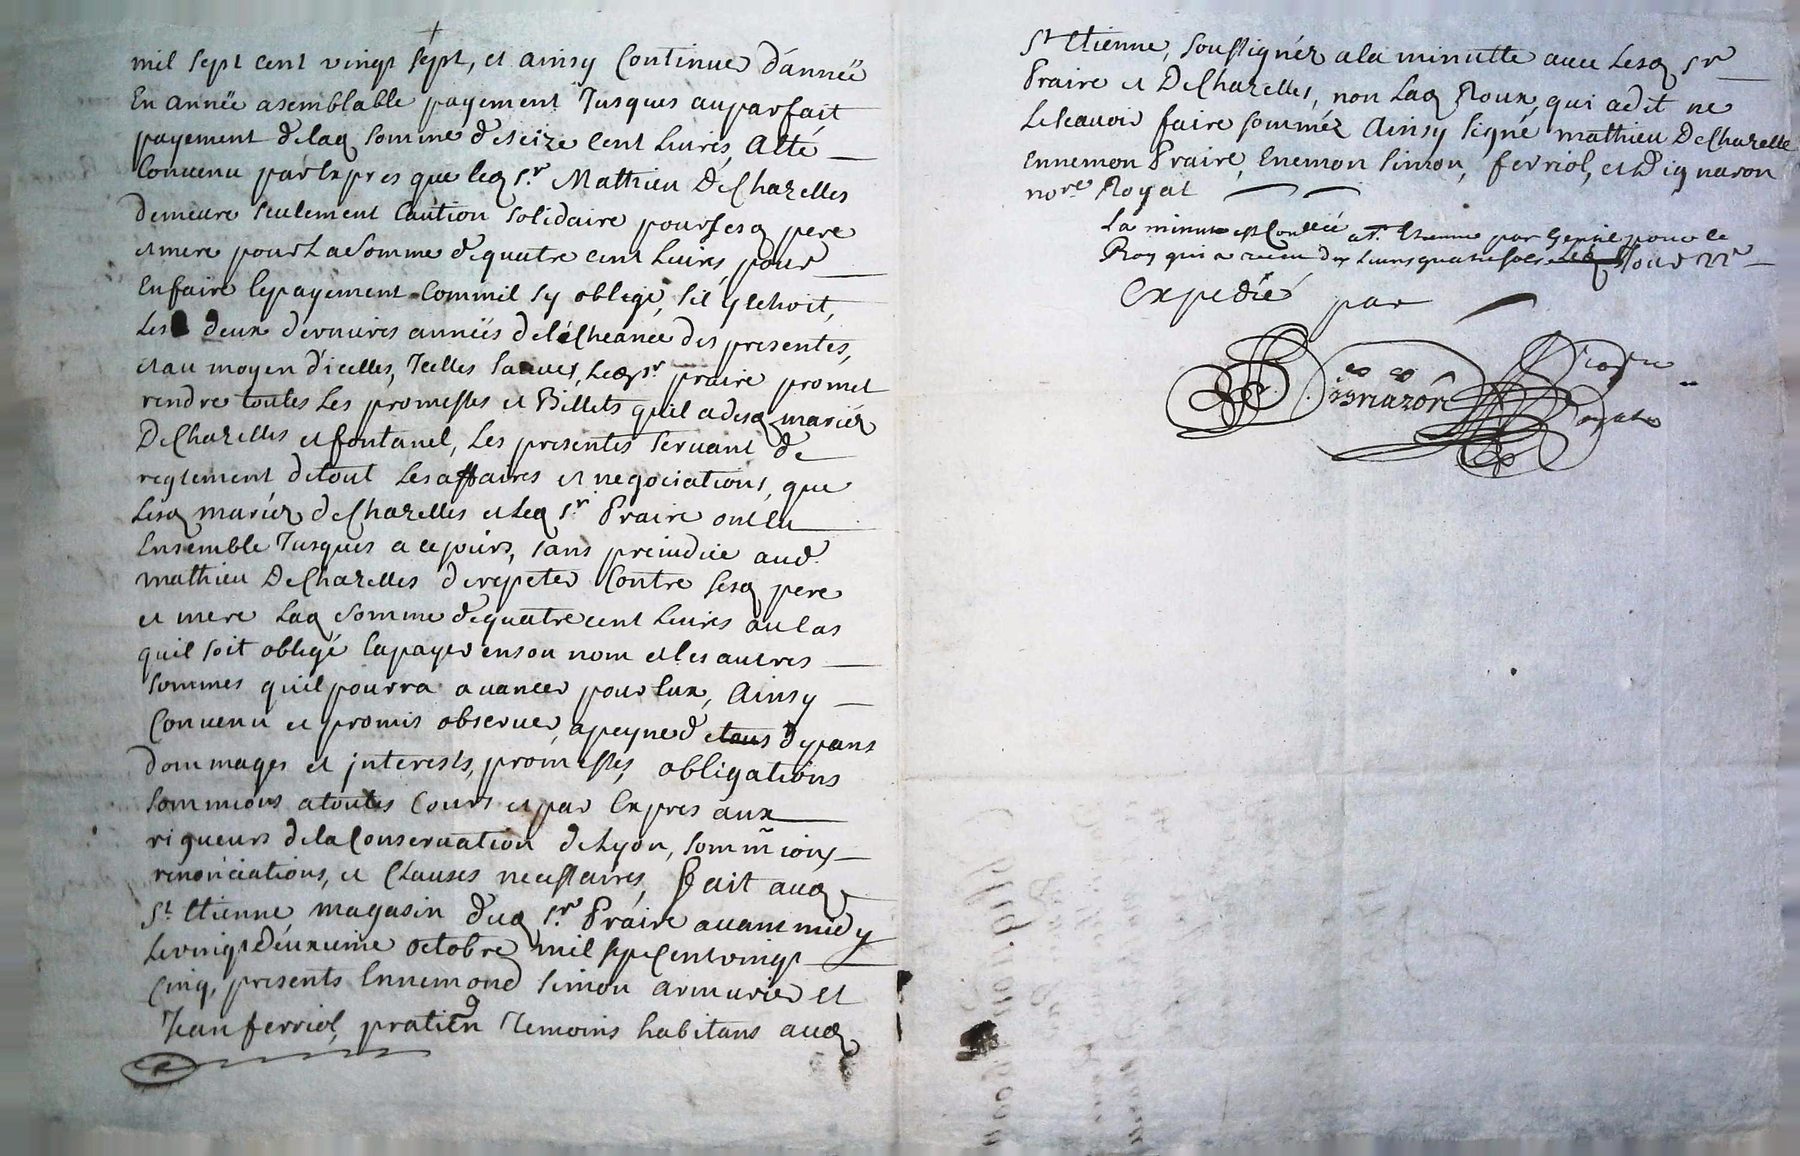 mil sept cent vingt sept, et ainsy Continuer d'année
En année asemblable payement Jusques auparfait
payement delaq somme deseize Cent Livres, A Esté
Convenu parExpres que leq Sr. Mathieu DeChazelles
demeure seulement Caution solidaire pour sesq pere
et mere pour La somme dequatre cent Livres pour
En faire lepayement Comm'il sy oblige, s'il y Echoit,
Les deux dernieres années de l'écheance des presentes,
et au moyen d'icelles, Icelles sauves, Leq Sr. praire promet
rendre toutes Les promesses et Billets qu'il a desq mariéz
DeChazelles et fontanel, Les presentes servant de
reglement detout Les affaires et negociations, que
Lesq mariéz deChazelles et Leq Sr. Praire ont Eu
Ensemble Jusques a cejours, sans prejudice aud.
mathieu DeChazelles derepeter Contre sesq pere
et mere Laq somme dequatre cent Livres au Cas
quil soit obligé Lapayer en son nom et les autres
sommes qu'il pourra avancer pour Eux, Ainsy
Convenu et promis observer, apeyne de tous depans
dommages et interests, promesses, obligations
sommions a toutes Cours et par Expres aux
rigueurs de la Conservation de Lyon, sommions
renonciations, et Clauses necessaires, fait auq
St. Etienne magasin duq Sr. Praire avant midy
Levingt deuxieme octobre mil sept Cent vingt
Cinq, presents Ennemond Simon armurier et
Jean ferriol, pratitien temoins habitans auq
St Etienne, soussignéz a la minutte avec Lesq Sr
Praire et DeChazelles, non Laq Roux, qui adit ne
Lesçavoir faire somméz Ainsy signé mathieu DeChazelle
Ennemon Praire, Enemon Simon, ferriol, et Dignaron
nore. Royal
La minute est Conllée a St. Etienne par Gentil pour le
Roy qui a receu dix Livres quatre sols
Expedié par
Dignaron
Royal